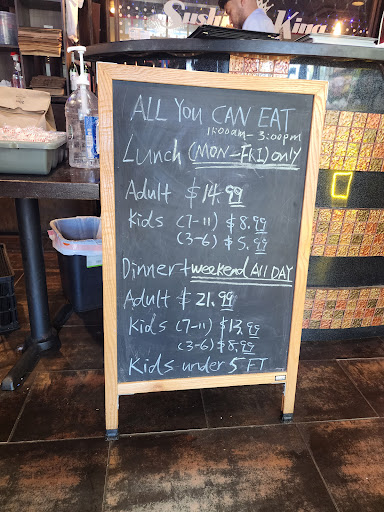 Sushi King
ALL YOU CAN EAT
11:00am - 3:00pm
Lunch (MON-FRI) only
Adult $14.99
Kids (7-11) $8.99
(3-6) $5.99
Dinner + weekend All DAY
Adult $21.99
Kids (7-11) $13.99
(3-6) $8.99
Kids under 5 FT